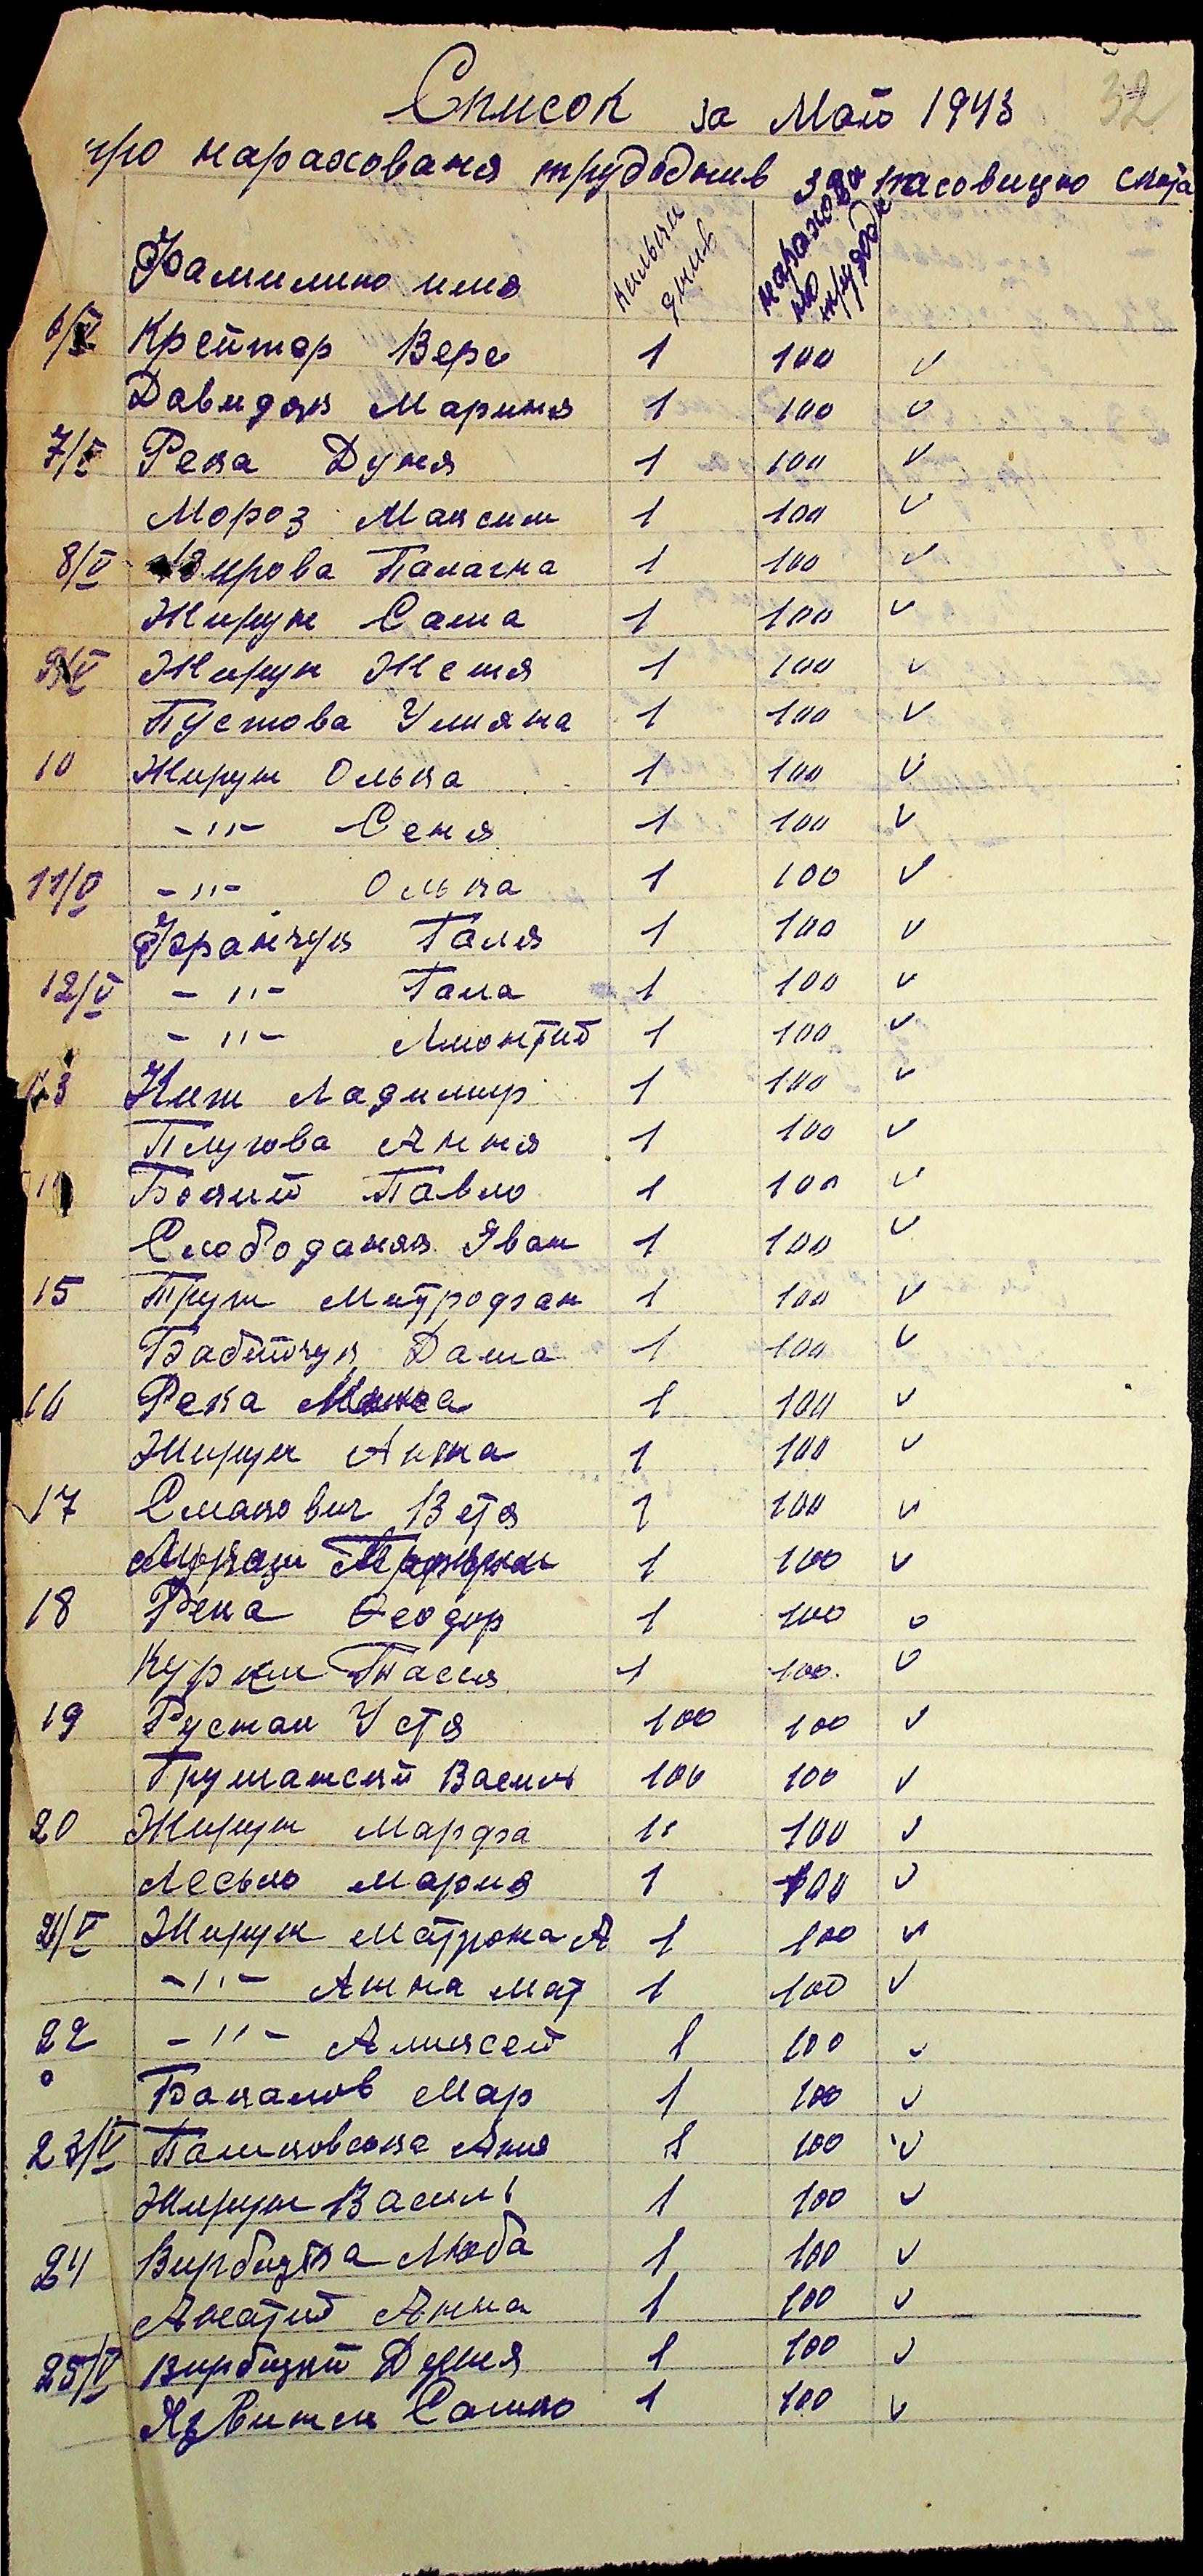 32
Список за Май 1943
про нарахованя трудоднив за пасовицю скота
Фамилию имя килыки днив нарахова но трудодн
6/V Крейтор Вера 1 100 v
Давидяк Мариня 1 100 v
7/V Река Дуня 1 100 v
Мороз Максим 1 100 v
8/V Палагна 1 100 v
Жирун Саша 1 100 v
9/V Жирун Женя 1 100 v
Пустова Уляна 1 100 v
10 Жирун Олька 1 100 v
-"- Сеня 1 100 v
11/V -"- Олька 1 100 v
Франчук Галя 1 100 v
12/V -"- Гала 1 100 v
-"- 1 100 v
13 Книш Ладимир 1 100 v
Плугова Ання 1 100 v
Павло 1 100 v
Слободаняк Яван 1 100 v
15 Труш Митрофан 1 100 v
Бабійчук Даша 1 100 v
16 Река 1 100 v
Жирун Анна 1 100 v
17 СмаковичВетя 1 100 v
1 100 v
18 Река Феодор 1 100 v
Тася 1 100. v
19 Русман Устя 100 100 v
Грушанский Василь 100 100 v
20 Жирун Марфа 1 100 v
Лесько Мария 1 100 v
21/V Жирун Матрона А 1 100 v
-"- Анна Мат 1 100 v
22 -"- Аликсей 1 100 v
Бакалов Мар 1 100 v
23/V Палиновска Аня 1 100 v
Жирун Василь 1 100 v
24 Вирбицка Люба 1 100 v
Анна 1 100 v
25/V Вирбицкий Дуня 1 100 v
Сашко 1 100 v